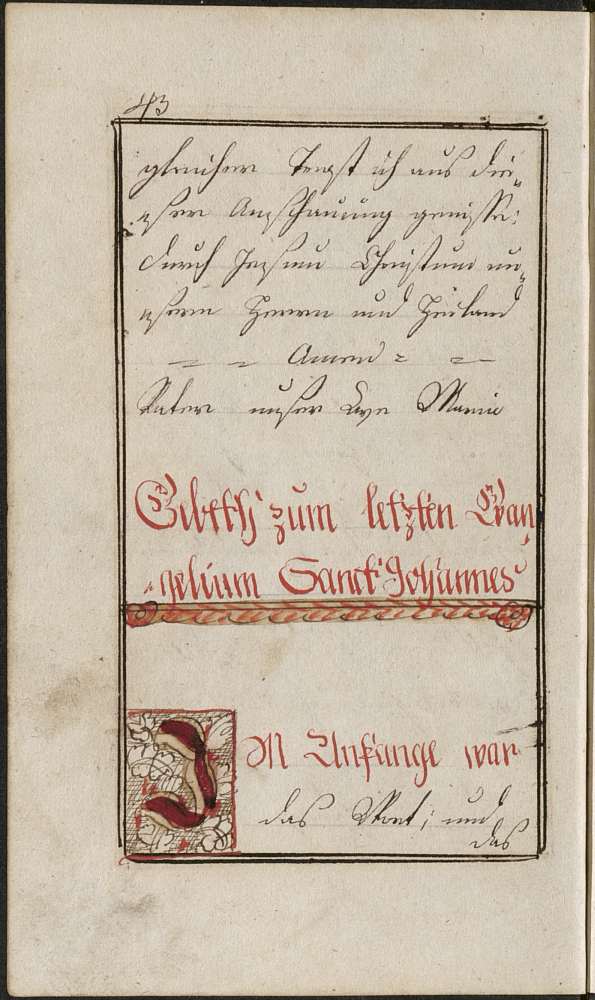 43
gleicher Trost ich aus die„
„ser Anschauung genisse:
durch Jesum Christum un„
„sern Herrn und Heiland
Amen
Vater unser Ave Maria
Gebeth zum letzten Evan„
„gelium Sanct Johannes
IM Anfange war
das Wort; und
das